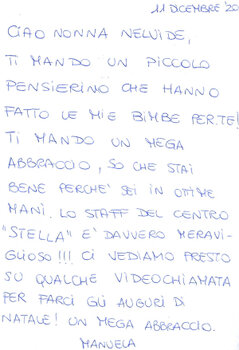 11 DICEMBRE '20
CIAO NONNA NELVIDE,
TI MANDO UN PICCOLO
PENSIERINO CHE HANNO
FATTO LE MIE BIMBE PER TE!
TI MANDO UN MEGA
ABBRACCIO, SO CHE STAI
BENE PERCHE' SEI IN OTTIME
MANI. LO STAFF DEL CENTRO
"STELLA" E' DAVVERO MERAVI-
GLIOSO!!! CI VEDIAMO PRESTO
SU QUALCHE VIDEOCHIAMATA
PER FARCI GLI AUGURI DI
NATALE! UN MEGA ABBRACCIO.
MANUELA